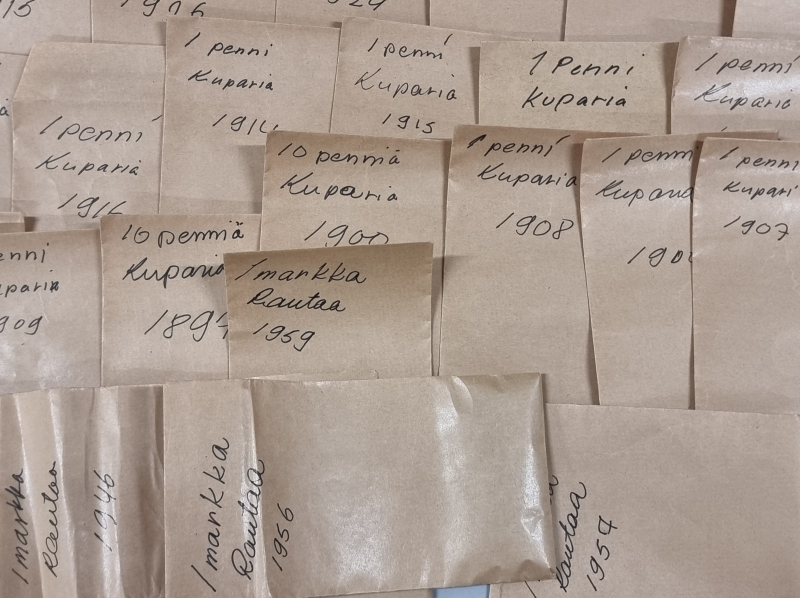 1 penni
Kuparia
1 penni
Kuparia
1915
1 Penni
Kuparia
1 penni
Kuparia
1 penni
Kuparia
1916
10 penniä
Kuparia
1900
1 penni
Kuparia
1908
1 penni
Kuparia
1 penni
Kupari
1907
enni
paria
909
10 penniä
Kuparia
189
1 markka
Rautaa
1959
1 markka
Rautaa
1946
1 markka
Rautaa
1956
Rautaa
1957